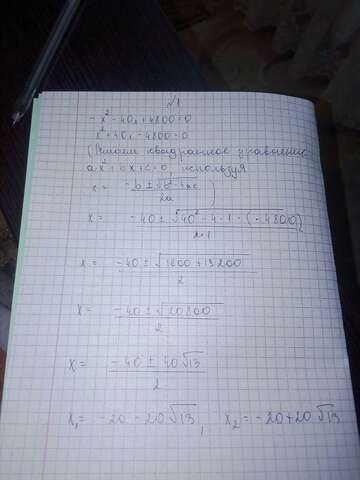 №1
-x²-40x+4800=0
x²+40x-4800=0
(Решаем квадратное уравнение
ax²+bx+c=0, используя
x = \frac{-b±\sqrt{b²-4ac}}{2a})
x = \frac{-40±\sqrt{40²-4·1·(-4800)}}{2·1}
x = \frac{-40±\sqrt{1600+19200}}{2}
x = \frac{-40±\sqrt{20800}}{2}
x = \frac{-40±40\sqrt{13}}{2}
x₁ = -20-20\sqrt{13}, x₂ = -20+20\sqrt{13}